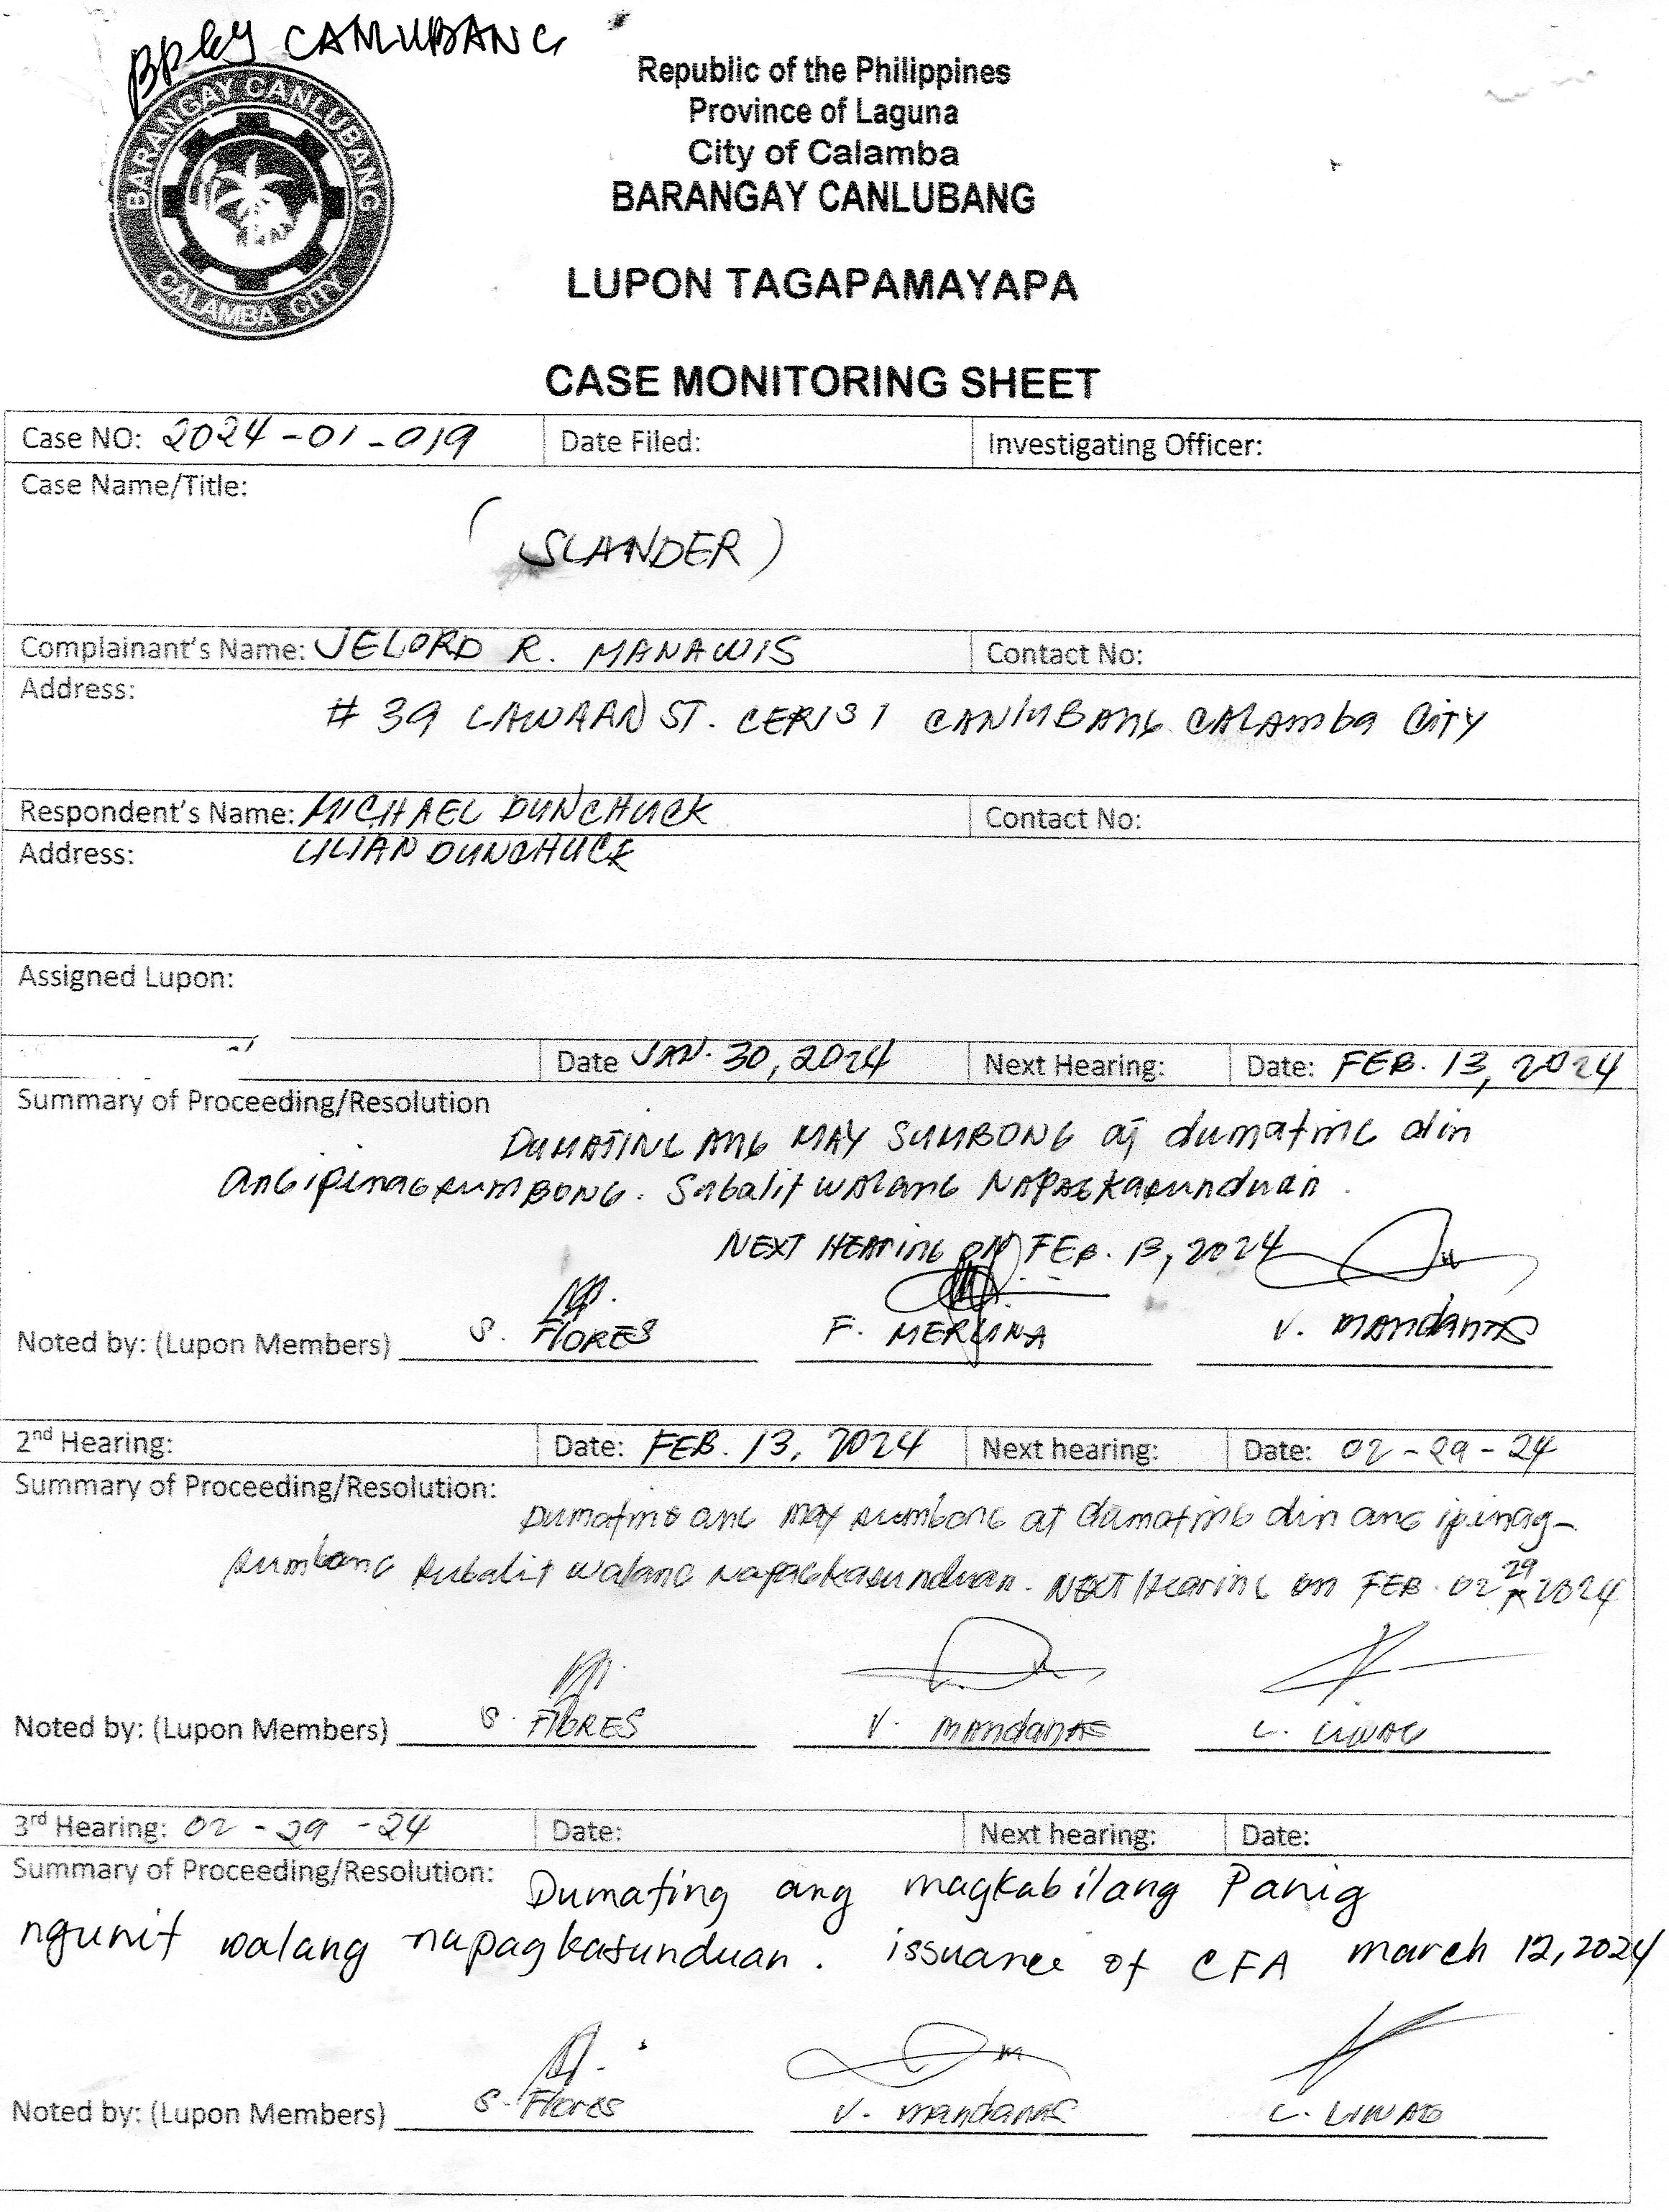 BRGY CANLUBANG
BARANGAY CANLUBANG
CALAMBA CITY
Republic of the Philippines
Province of Laguna
City of Calamba
BARANGAY CANLUBANG
LUPON TAGAPAMAYAPA
CASE MONITORING SHEET
Case NO: 2024-01-019 Date Filed: Investigating Officer:
Case Name/Title:
(SLANDER)
Complainant's Name: JELORD R. MANAWIS Contact No:
Address:
# 39 LAWAAN ST. CERIS 1 CANLUBANG CALAMBA CITY
Respondent's Name: MICHAEL DUNCHUCK Contact No:
Address: LILIAN DUNCHUCK
Assigned Lupon:
Date JAN. 30, 2024 Next Hearing: Date: FEB. 13, 2024
Summary of Proceeding/Resolution
DUMATING ANG MAY SUMBONG at dumating din
ang ipinagsumBONG. Subalit walang NAPAGkasunduan.
NEXT HEARING ON FEB. 13, 2024
Noted by: (Lupon Members) S. FLORES F. MERLINA V. mandanas
2nd Hearing: Date: FEB. 13, 2024 Next hearing: Date: 02-29-24
Summary of Proceeding/Resolution:
Dumating ang may sumbong at dumating din ang ipinag-
sumbong subalit walang napagkasunduan. NEXT Hearing on FEB. 02 29 2024
Noted by: (Lupon Members) S. FLORES V. mandanas L. LIWAG
3rd Hearing: 02-29-24 Date: Next hearing: Date:
Summary of Proceeding/Resolution: Dumating ang magkabilang Panig
ngunit walang napagkasunduan. issuance of CFA march 12, 2024
Noted by: (Lupon Members) S. Flores V. mandanas L. LIWAG